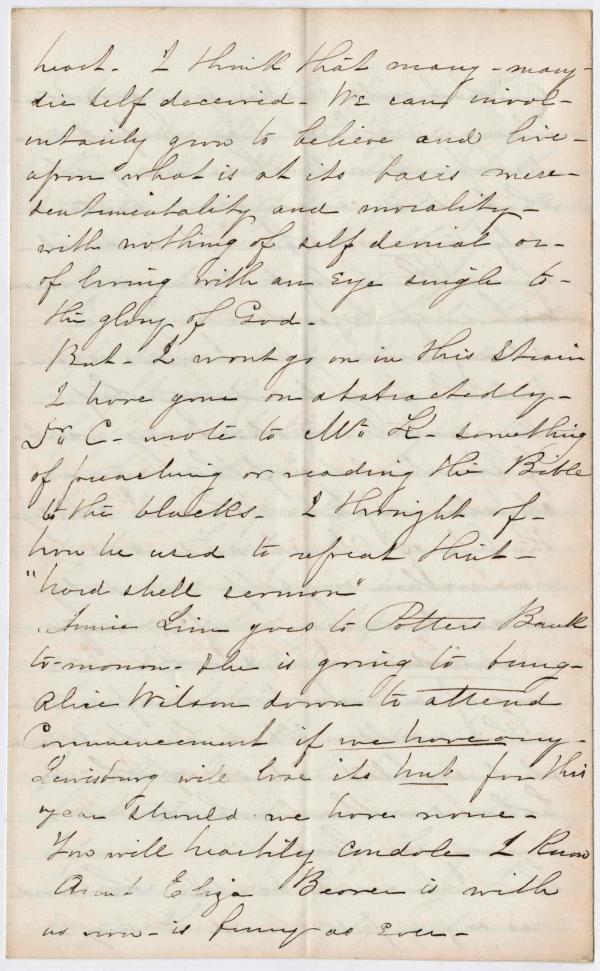 heart - I think that many - many -
die self deceived - We can invol-
untarily grow to believe and live -
upon what is at its basis mere -
sentimentality and morality -
with nothing of self denial or -
of living with an Eye single to -
the glory of God -
But - I wont go on in this Strain
I have gone on abstractedly -
Dr. C - wrote to Mr. K - something
of preaching or reading the Bible
to the blacks - I thought of -
how he used to repeat that -
"hard shell sermon"
Annie Linn goes to Potters Bank
to-morrow - She is going to bring -
Alice Wilson down to attend
Commencement if we have any -
Lewisburg will lose its hub for this
year should we have none -
You will heartily condole I know
Aunt Eliza Beaver is with
us now - is funny as Ever -